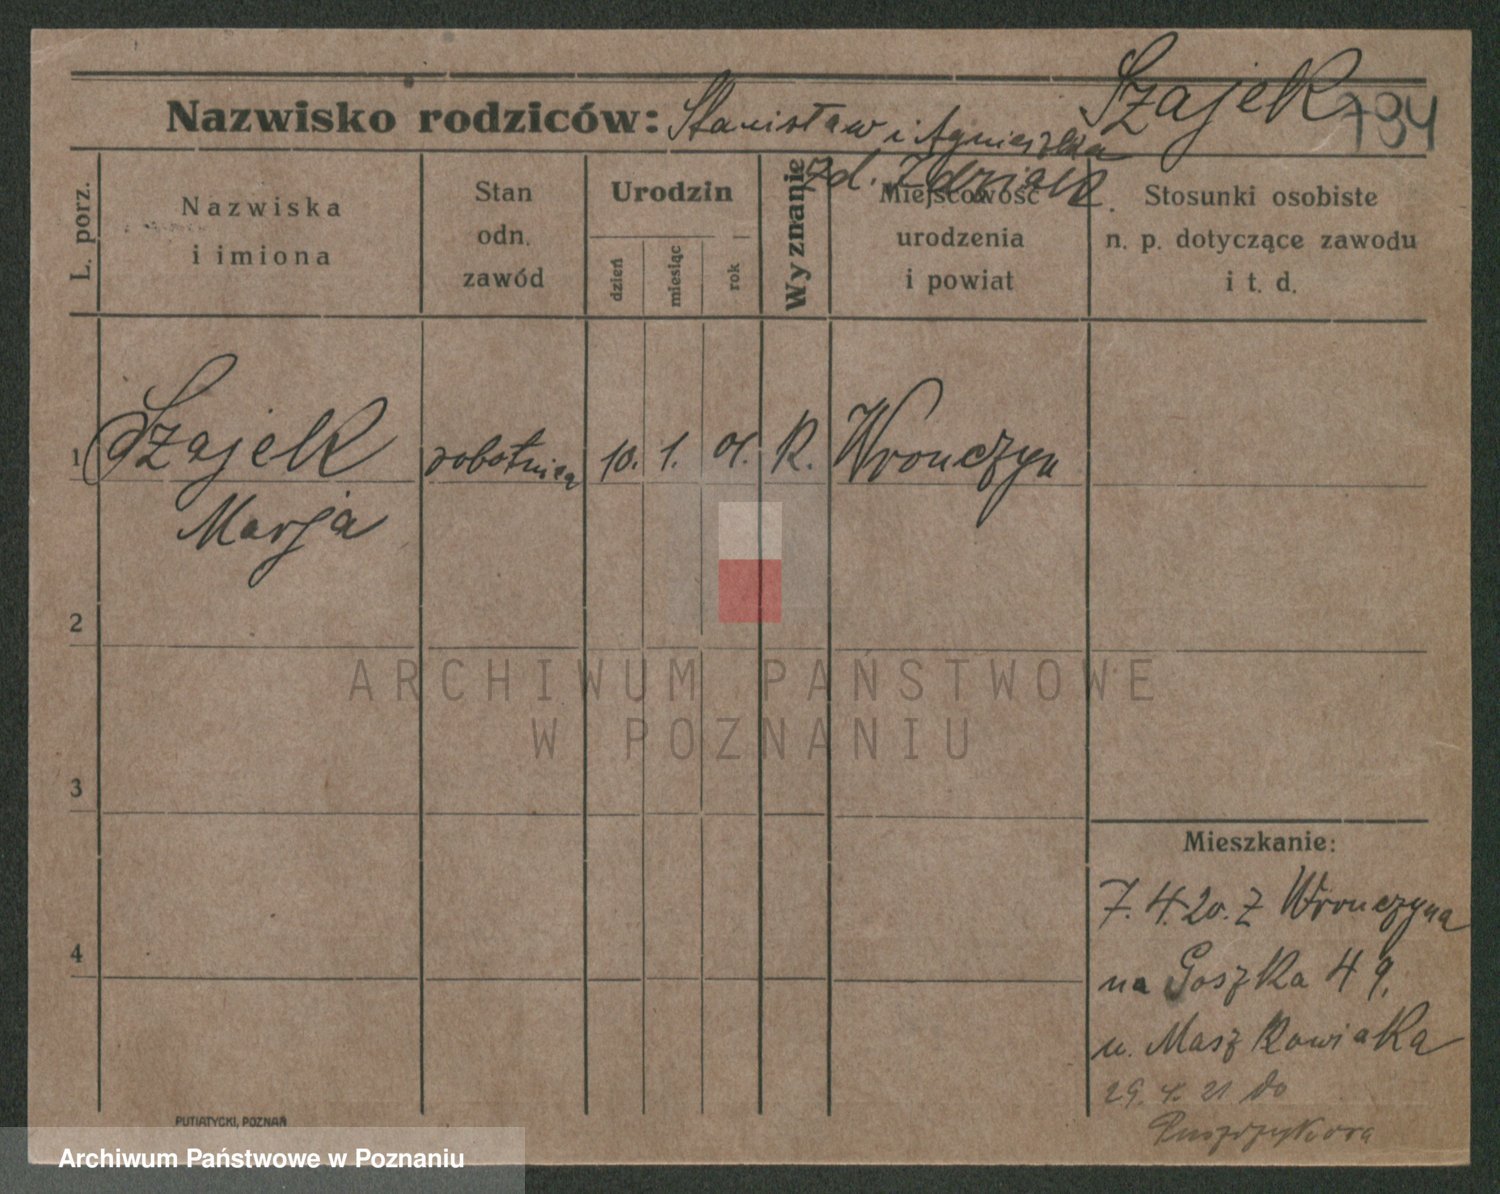 Szajek
794
Nazwisko rodziców: Stanisław i Agnieszka
zd. Zdziałek
L. porz.
Nazwiska
i imiona
Stan
odn.
zawód
Urodzin
dzień
miesiąc
rok
Wyznanie
Miejscowość
urodzenia
i powiat
Stosunki osobiste
n. p. dotyczące zawodu
i t. d.
1 Szajek robotnica 10. 1. 01. R. Wronczyn
Marja
2
3
4
ARCHIWUM PAŃSTWOWE
W POZNANIU
Mieszkanie:
7. 4. 20. z Wronczyna
na Goszka 49.
u. Maszkowiaka
29. 4. 21 do
PUTIATYCKI, POZNAŃ
Archiwum Państwowe w Poznaniu